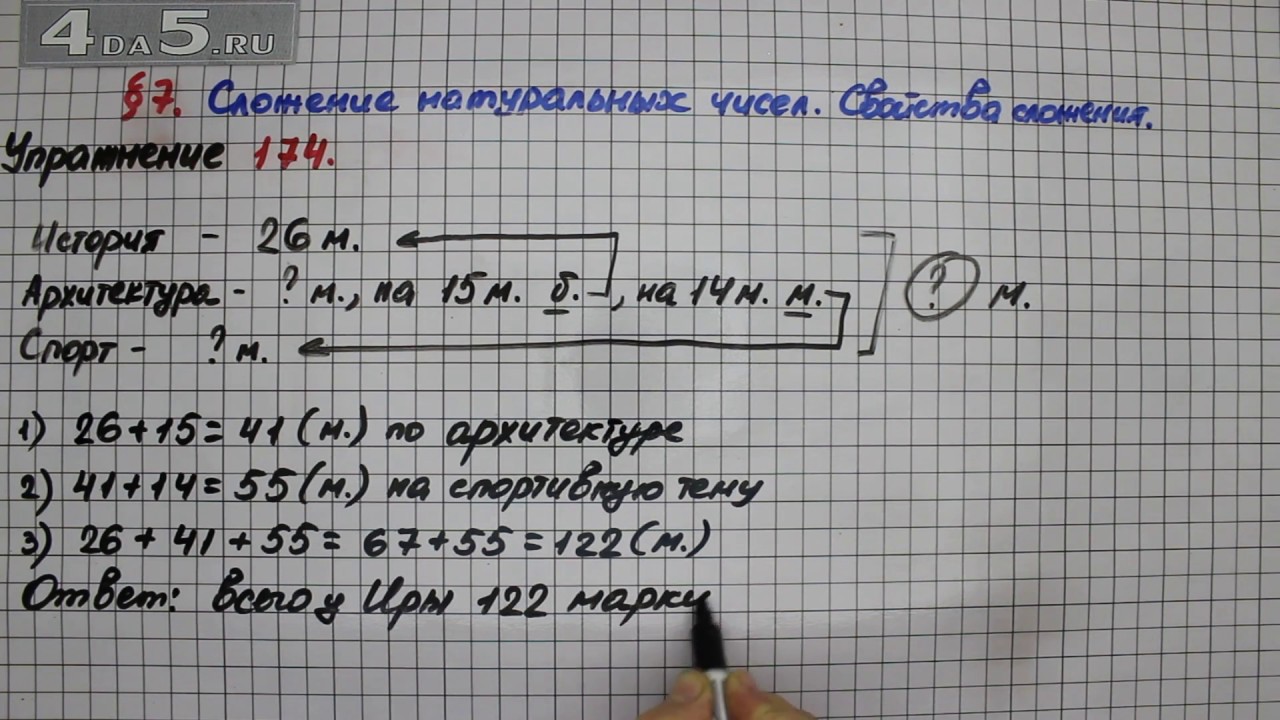 4DA5.RU
§7. Сложение натуральных чисел. Свойства сложения.
Упражнение 174.
История - 26 м.
Архитектура - ? м., на 15 м. б., на 14 м. м. ? м.
Спорт - ? м.
1) 26+15=41 (м.) по архитектуре
2) 41+14=55 (м.) на спортивную тему
3) 26+41+55=67+55=122 (м.)
Ответ: всего у Иры 122 марки